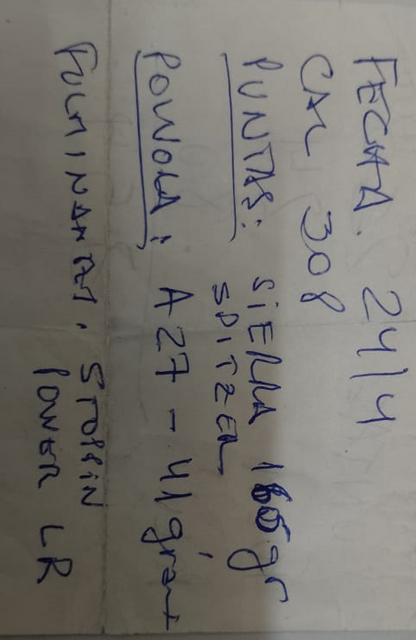 FECHA. 24/4
CAL 308
PUNTAS: SIERRA 165 gr
SPITZER
POLVORA: A27 - 41 grains
FULMINANTES. STOPPIN
POWER LR